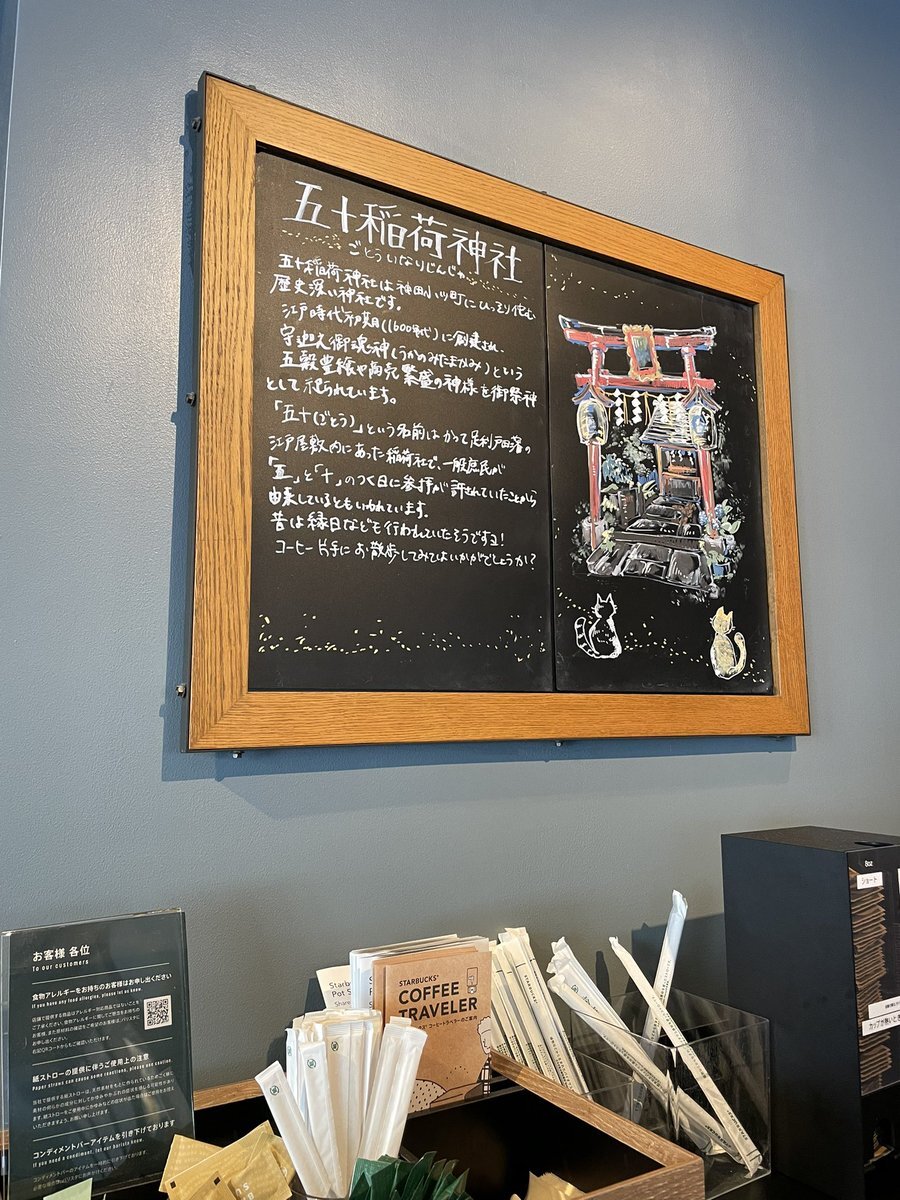 五十稲荷神社
ごとういなりじんじゃ
五十稲荷神社は神田小川町にひっそり佇む
歴史深い神社です。
江戸時代初期(1600年代)に創建され、
宇迦之御魂神(うかのみたまのかみ)という
五穀豊穣や商売繁盛の神様を御祭神
として祀られています。
「五十(ごとう)」という名前はかつて足利戸田藩の
江戸屋敷内にあった稲荷社で、一般庶民が
「五」と「十」のつく日に参拝が許されていたことから
由来しているともいわれています。
昔は縁日なども行われていたそうですヨ!
コーヒー片手にお散歩してみてはいかがでしょうか?
お客様 各位
To our customers
食物アレルギーをお持ちのお客様はお申し出ください
If you have any food allergies, please let us know.
紙ストローの提供に伴うご使用上の注意
Paper straws can cause some reactions, please use caution.
コンディメントバーアイテムを引き下げております
If you need a condiment, let our barista know.
Starb
Pot S
Share
STARBUCKS®
COFFEE
TRAVELER
8oz
ショート